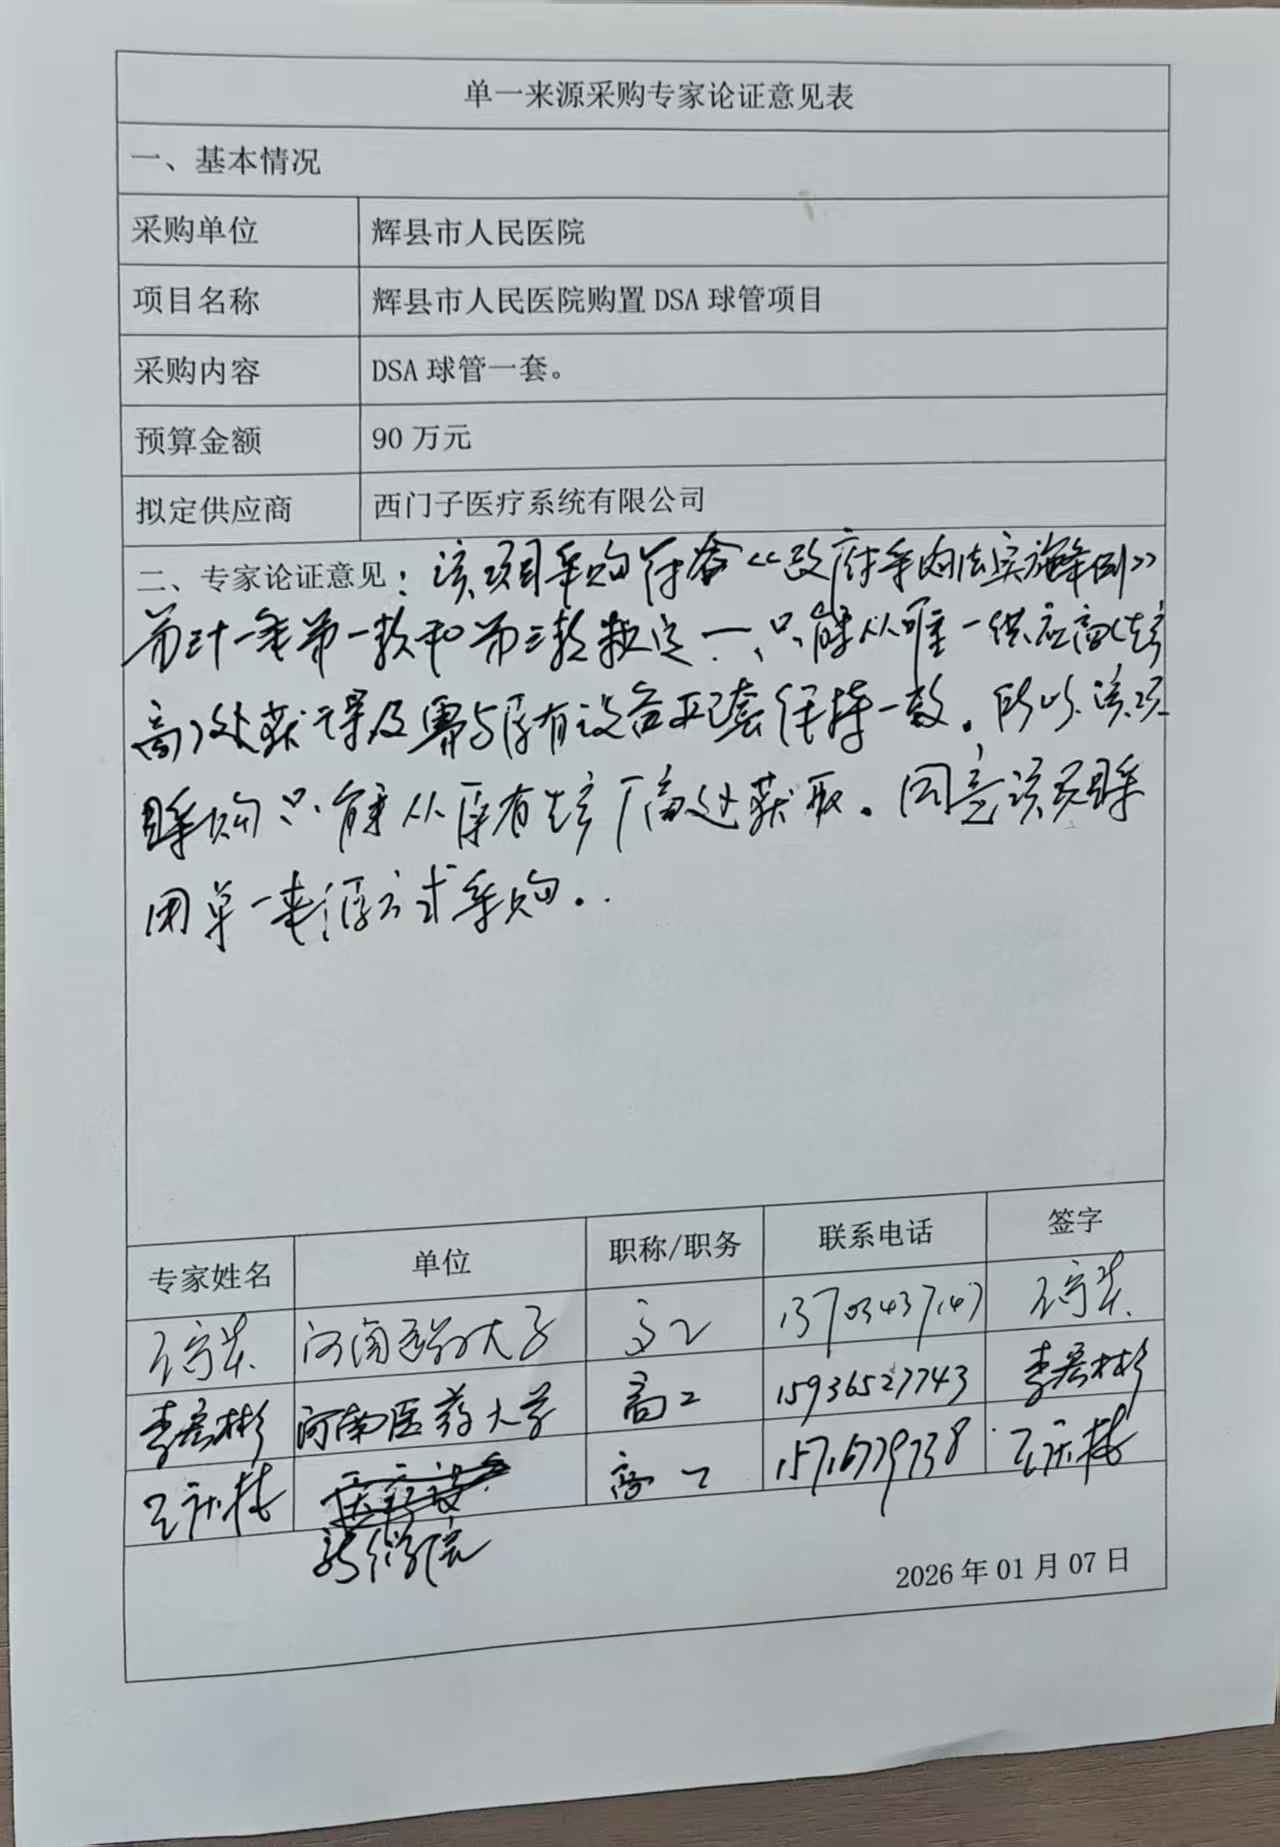 单一来源采购专家论证意见表
一、基本情况
采购单位 辉县市人民医院
项目名称 辉县市人民医院购置 DSA 球管项目
采购内容 DSA 球管一套。
预算金额 90 万元
拟定供应商 西门子医疗系统有限公司
二、专家论证意见：该项目采购符合《政府采购法实施条例》
第三十一条第一款和第二款规定一、只能从唯一供应商（生产
商）处获得及需与原有设备配套保持一致。所以该项
目采购只能从原有生产厂商处获取。同意该项目采
用单一来源方式采购。
专家姓名 单位 职称/职务 联系电话 签字
河南医药大学 高工
河南医药大学 高工 15936527743
新 学院 高工
2026 年 01 月 07 日